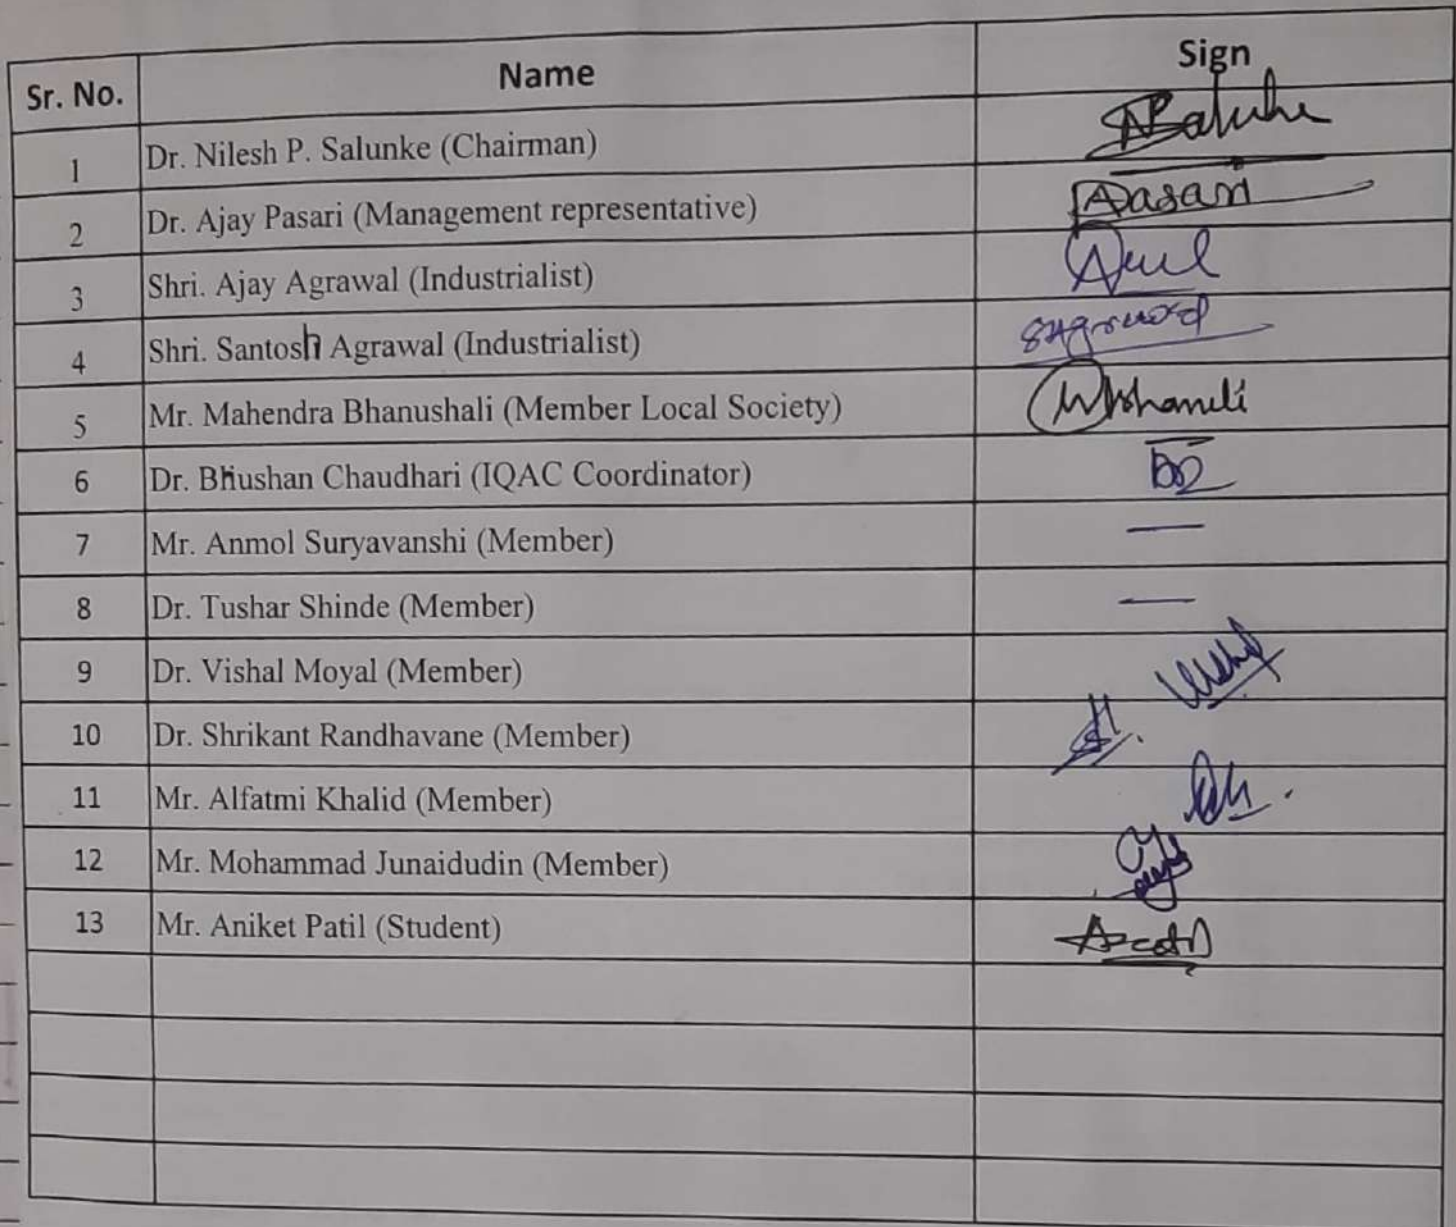 Sr. No. Name Sign
1 Dr. Nilesh P. Salunke (Chairman)
2 Dr. Ajay Pasari (Management representative)
3 Shri. Ajay Agrawal (Industrialist)
4 Shri. Santosh Agrawal (Industrialist)
5 Mr. Mahendra Bhanushali (Member Local Society)
6 Dr. Bhushan Chaudhari (IQAC Coordinator)
7 Mr. Anmol Suryavanshi (Member) —
8 Dr. Tushar Shinde (Member) —
9 Dr. Vishal Moyal (Member)
10 Dr. Shrikant Randhavane (Member)
11 Mr. Alfatmi Khalid (Member)
12 Mr. Mohammad Junaidudin (Member)
13 Mr. Aniket Patil (Student)